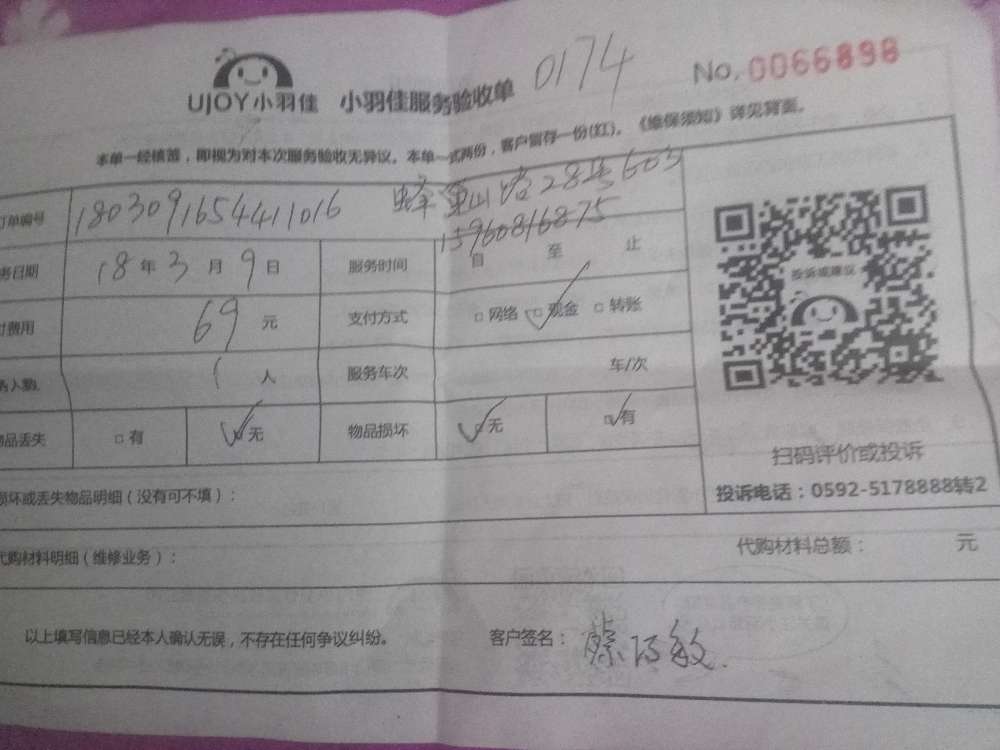 0174
No. 0066898
UJOY小羽佳 小羽佳服务验收单
本单一经核签，即视为对本次服务验收无异议。本单一式两份，客户留存一份(红)。《维保须知》详见背面。
订单编号 1803091654411016 山路28号603
15960816875
务日期 18年3月9日 服务时间 自 至 止
费用 69元 支付方式 □网络 □现金 □转账
务人数 1人 服务车次 车/次
物品丢失 □有 □无 物品损坏 □无 □有
投诉或建议
扫码评价或投诉
投诉电话：0592-5178888转2
损坏或丢失物品明细（没有可不填）：
代购材料明细（维修业务）： 代购材料总额： 元
以上填写信息已经本人确认无误，不存在任何争议纠纷。 客户签名：